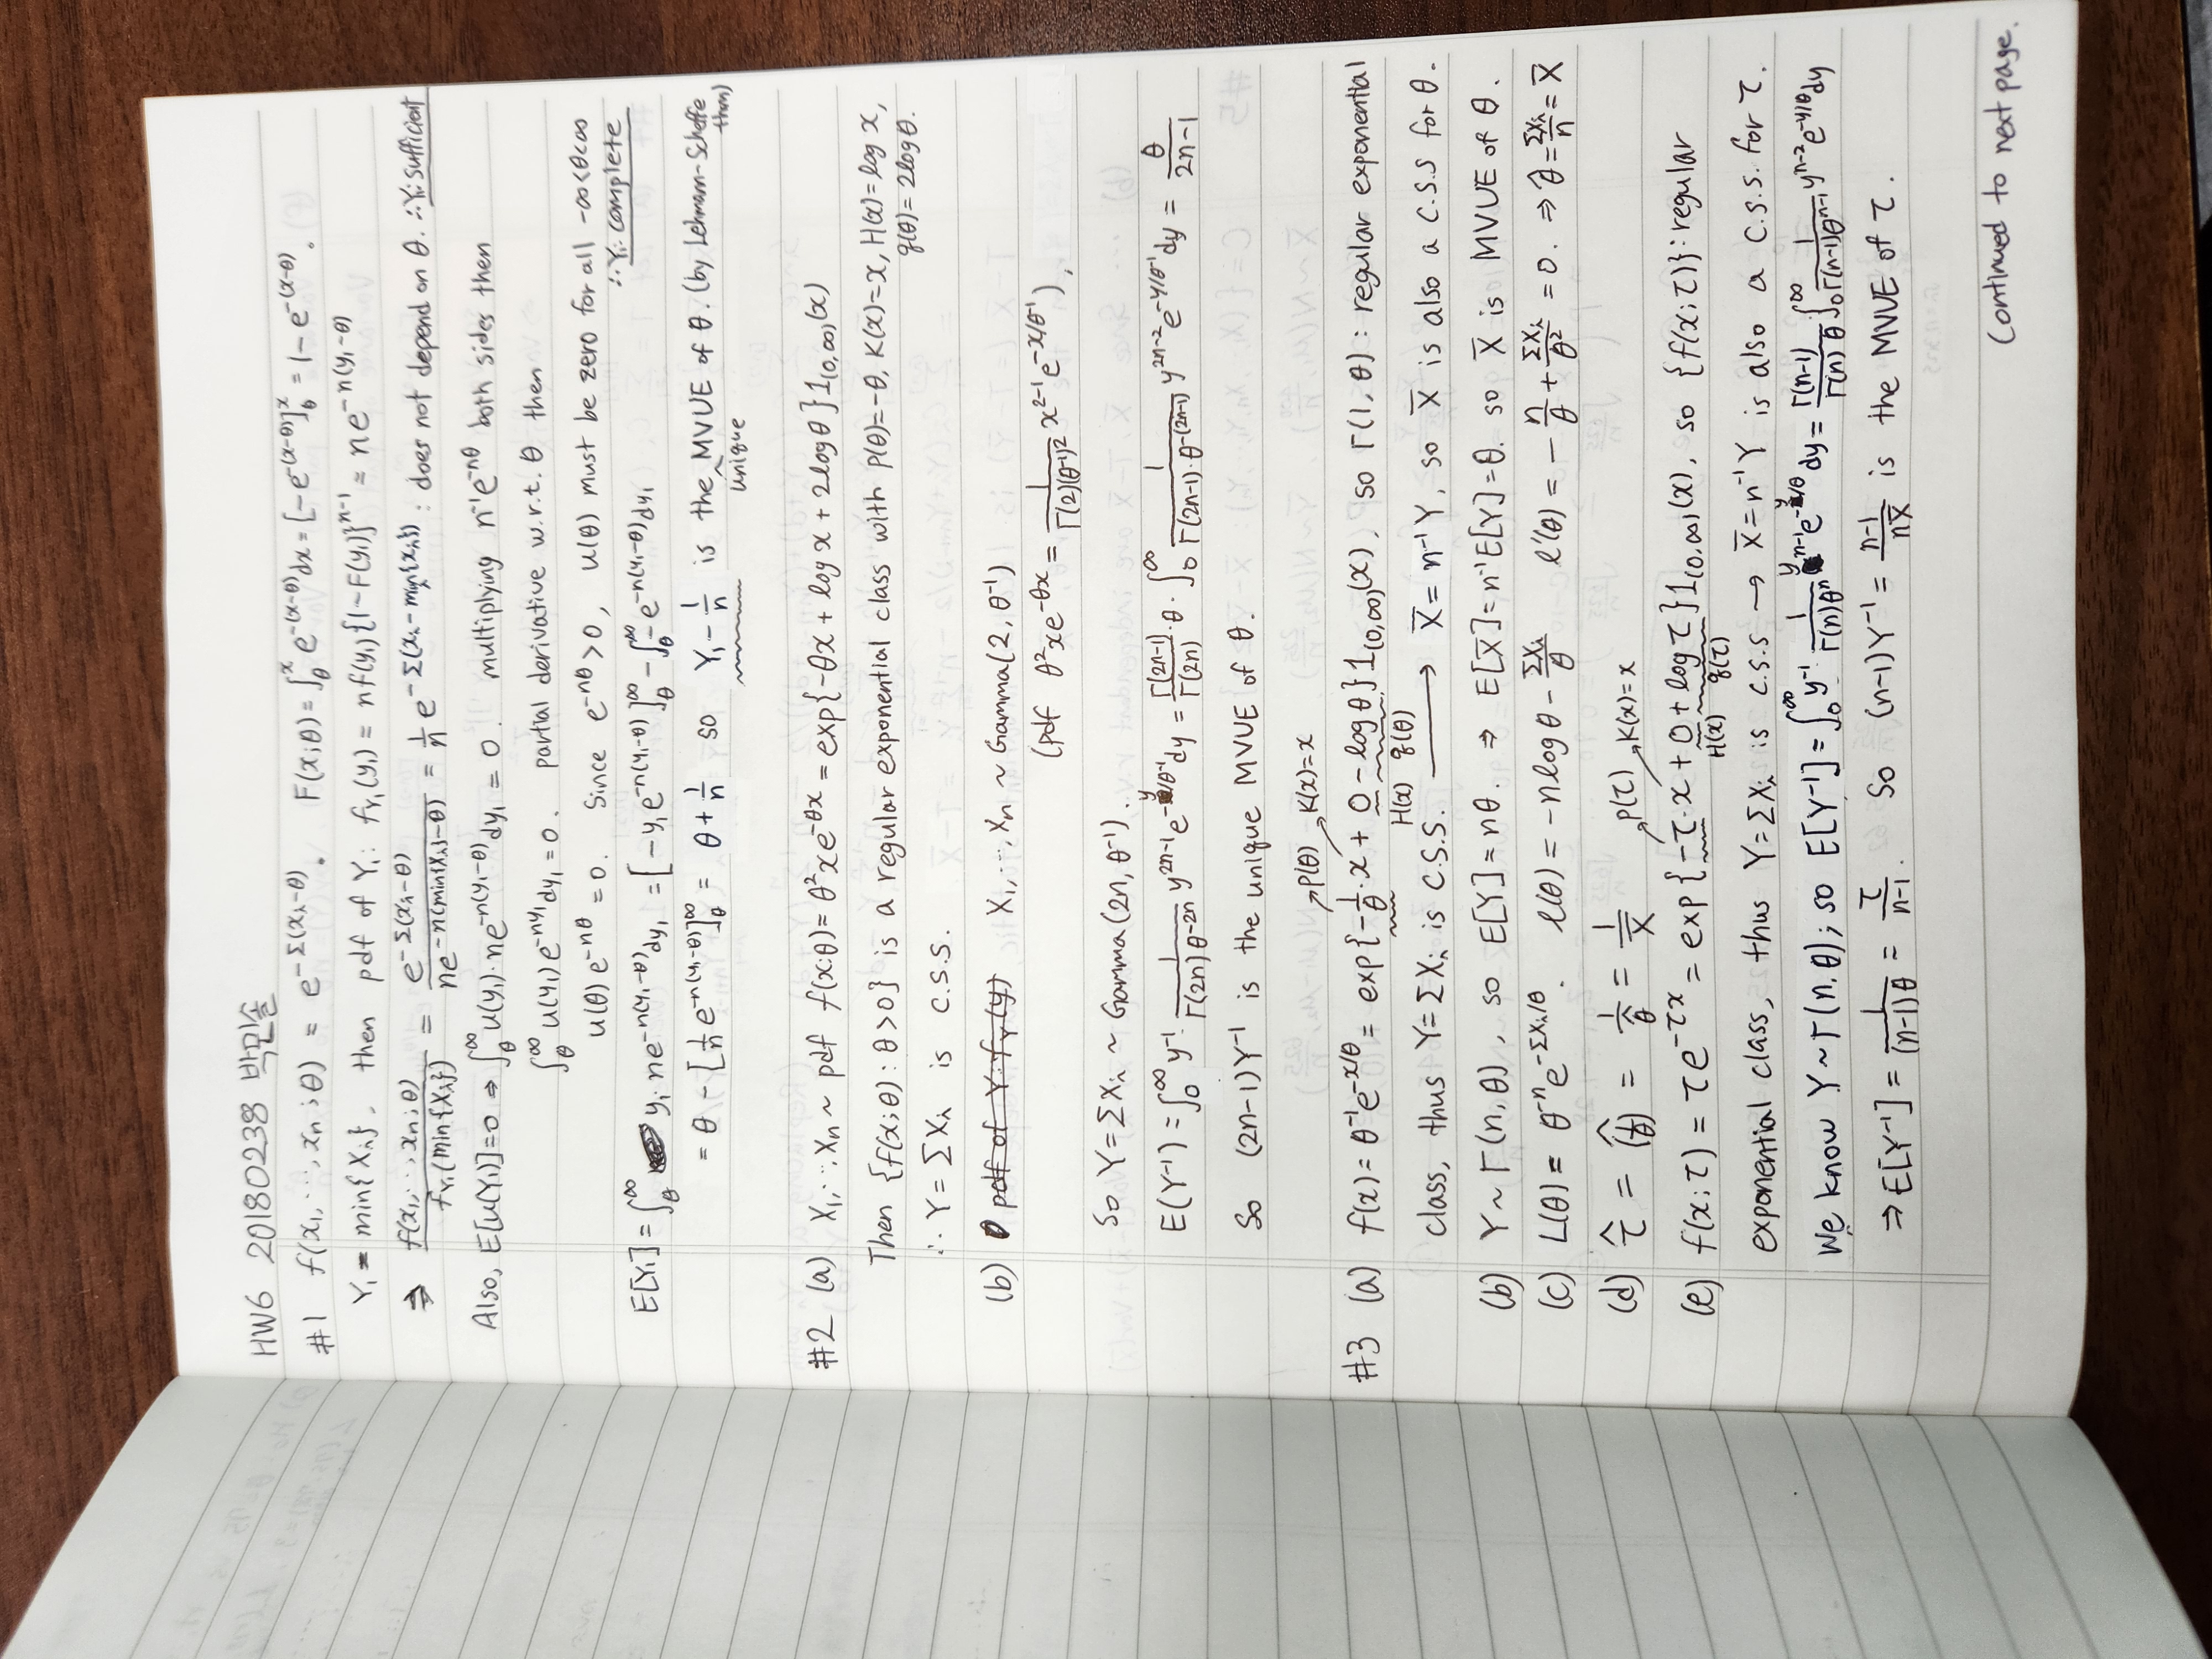 HW6 20180238 박민솔
#1 f(x₁,⋯,xₙ;θ) = e^{-Σ(xᵢ-θ)}. F(x;θ) = ∫_θ^x e^{-(x-θ)}dx = [-e^{-(x-θ)}]_θ^x = 1-e^{-(x-θ)}.
Y₁ = min{Xᵢ}, then pdf of Y₁: f_{Y₁}(y₁) = nf(y₁){1-F(y₁)}^{n-1} = ne^{-n(y₁-θ)}
⇒ f(x₁,⋯,xₙ;θ)/f_{Y₁}(min{Xᵢ}) = e^{-Σ(xᵢ-θ)}/ne^{-n(min{xᵢ}-θ)} = 1/n e^{-Σ(xᵢ-min{xᵢ})} : does not depend on θ. ∴Y₁: sufficient
Also, E[u(Y₁)]=0 ⇒ ∫_θ^∞ u(y₁)·ne^{-n(y₁-θ)}dy₁ = 0. multiplying n⁻¹e^{-nθ} both sides then
∫_θ^∞ u(y₁)e^{-ny₁}dy₁=0. partial derivative w.r.t. θ then
u(θ)e^{-nθ}=0. Since e^{-nθ}>0, u(θ) must be zero for all -∞<θ<∞
∴Y₁: complete
E[Y₁] = ∫_θ^∞ y₁·ne^{-n(y₁-θ)}dy₁ = [-y₁e^{-n(y₁-θ)}]_θ^∞ - ∫_θ^∞ -e^{-n(y₁-θ)}dy₁
= θ - [1/n e^{-n(y₁-θ)}]_θ^∞ = θ + 1/n so Y₁ - 1/n is the unique MVUE of θ. (by Lehmann-Scheffe thm)
#2 (a) X₁,⋯,Xₙ ~ pdf f(x;θ) = θ²xe^{-θx} = exp{-θx + log x + 2logθ}1_{(0,∞)}(x)
Then {f(x;θ) : θ>0} is a regular exponential class with p(θ)=-θ, K(x)=x, H(x)=log x,
q(θ)=2logθ.
∴ Y = ΣXᵢ is c.s.s.
(b) pdf of Y: f_Y(y) X₁,⋯,Xₙ ~ Gamma(2, θ⁻¹)
(pdf θ²xe^{-θx} = 1/(Γ(2)(θ⁻¹)²) x^{2-1}e^{-x/θ⁻¹}),
So Y = ΣXᵢ ~ Gamma(2n, θ⁻¹).
E(Y⁻¹) = ∫₀^∞ y⁻¹·1/(Γ(2n)θ^{-2n}) y^{2n-1}e^{-y/θ⁻¹}dy = Γ(2n-1)/Γ(2n)·θ·∫₀^∞ 1/(Γ(2n-1)·θ^{-(2n-1)}) y^{2n-2}e^{-y/θ⁻¹}dy = θ/(2n-1)
So (2n-1)Y⁻¹ is the unique MVUE of θ.
p(θ) K(x)=x
#3 (a) f(x) = θ⁻¹e^{-x/θ} = exp{-1/θ·x + 0 - logθ}1_{(0,∞)}(x), so Γ(1,θ) : regular exponential
H(x) q(θ)
class, thus Y = ΣXᵢ is c.s.s. → X̄ = n⁻¹Y, so X̄ is also a c.s.s for θ.
(b) Y ~ Γ(n,θ), so E[Y] = nθ. ⇒ E[X̄] = n⁻¹E[Y] = θ. so X̄ is MVUE of θ.
(c) L(θ) = θ⁻ⁿe^{-Σxᵢ/θ}. ℓ(θ) = -nlogθ - Σxᵢ/θ ℓ'(θ) = -n/θ + Σxᵢ/θ² = 0. ⇒ θ̂ = ΣXᵢ/n = X̄
(d) τ̂ = (1/θ)^ = 1/θ̂ = 1/X̄
p(τ) K(x)=x
(e) f(x;τ) = τe^{-τx} = exp{-τ·x + 0 + logτ}1_{(0,∞)}(x), so {f(x;τ)}: regular
H(x) q(τ)
exponential class, thus Y = ΣXᵢ is c.s.s → X̄ = n⁻¹Y is also a c.s.s. for τ.
We know Y ~ Γ(n,θ); so E[Y⁻¹] = ∫₀^∞ y⁻¹·1/(Γ(n)θⁿ) y^{n-1}e^{-y/θ}dy = Γ(n-1)/(Γ(n)θ) ∫₀^∞ 1/(Γ(n-1)θ^{n-1}) y^{n-2}e^{-y/θ}dy
⇒ E[Y⁻¹] = 1/((n-1)θ) = τ/(n-1). So (n-1)Y⁻¹ = (n-1)/(nX̄) is the MVUE of τ.
Continued to next page.